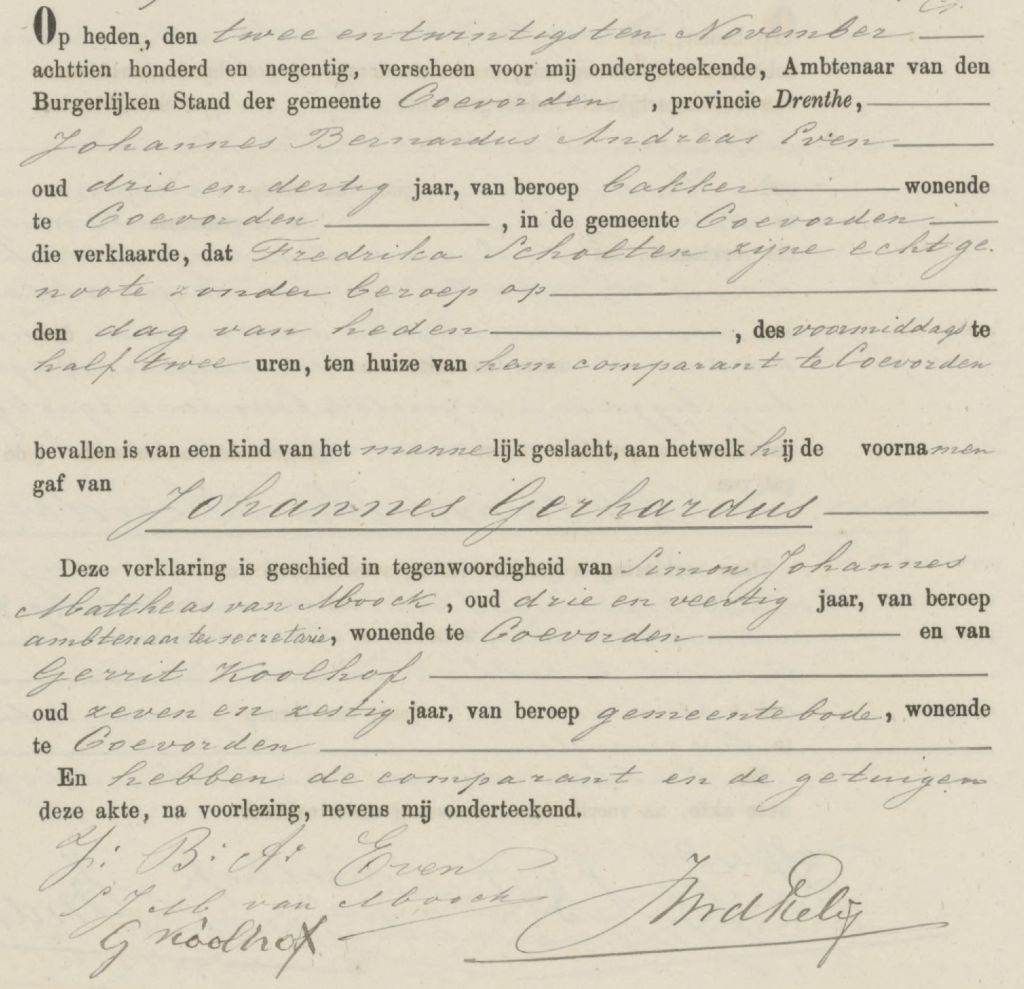 Op heden, den twee entwintigsten November
achttien honderd en negentig, verscheen voor mij ondergeteekende, Ambtenaar van den
Burgerlijken Stand der gemeente Coevorden, provincie Drenthe,
Johannes Bernardus Andreas Even
oud drie en dertig jaar, van beroep bakker wonende
te Coevorden, in de gemeente Coevorden
die verklaarde, dat Fredrika Scholten zijne echtge-
noote zonder beroep op
den dag van heden, des voormiddags te
half twee uren, ten huize van hem comparant te Coevorden
bevallen is van een kind van het mannelijk geslacht, aan hetwelk hij de voornamen
gaf van
Johannes Gerhardus
Deze verklaring is geschied in tegenwoordigheid van Simon Johannes
Mattheas van Moock, oud drie en veertig jaar, van beroep
ambtenaar ter secretarie, wonende te Coevorden en van
Gerrit Koolhof
oud zeven en zestig jaar, van beroep gemeentebode, wonende
te Coevorden
En hebben de comparant en de getuigen
deze akte, na voorlezing, nevens mij onderteekend.
J: B: A: Even
S J M van Moock
G Koolhof